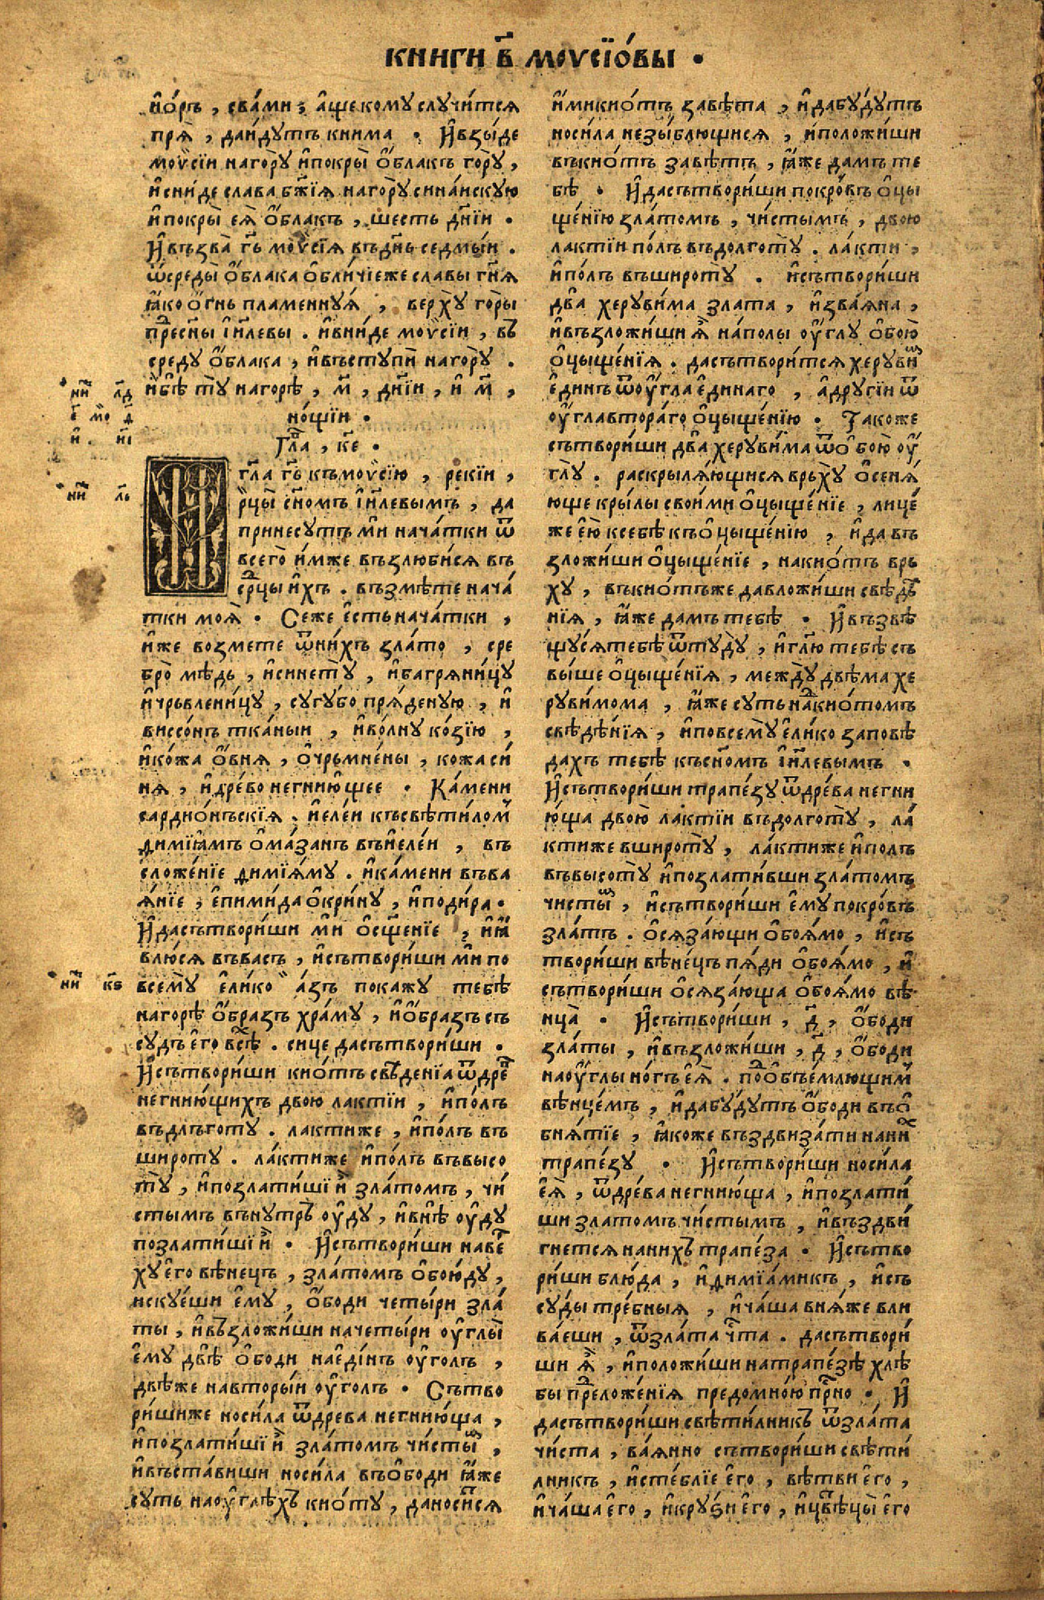 книги в҃ моѵсїо́вы .
и҆ѻ́ръ , сва́ми ; а҆ще кому случи́тся
пря̀ , дай́дутъ книма . И҆взы́де
моѵ̈сїи нагорꙋ и҆покры̀ ѻ҆́блакъ го́рꙋ ,
и҆сни́де слава бж҃їя нагорꙋ сина́искую
и҆покры̀ еѧ̀ ѻ҆́блакъ , шесть дні҃и .
И҆възва̀ гь҃ моѵ̈сїѧ въдн҃ь седмы́и .
ѿсреды̀ ѻ҆́блака ѻ҆бли́чїеже славы гн҃ѧ
ꙗ҆́ко ѻ҆́гнь пламеннꙋѧ , верхꙋ горы̀
пресн҃ы і҆ил҃евы . и҆вни́де моѵ̈сїи , въ
средꙋ ѻ҆́блака , и҆въстꙋпѝ нагорꙋ .
и҆бѣ̀ тꙋ̀ нагорѣ , м҃ , дні҃и , и҆ м҃ ,
но́щїи .
Гла҃ , ке҃ .
И
гла҃ гь҃ къмоѵ̈сїю , рекїи ,
рцы̀ сн҃омъ і҆ил҃евымъ , да
принесꙋтъ ми нача́тки ѿ
всего̀ и҆́мже възлюби́ся въ
ср҃цы и҆́хъ . възмѣ́те нача́
тки моѧ̀ . Се́же е҆́сть нача́тки ,
и҆́же во́змете ѿни́хъ зла́то , сре
бро̀ мѣдь , и҆синетꙋ̀ , и҆багряни́цꙋ
и҆чрьвлени́цꙋ , сꙋгꙋ́бо пря́денꙋю , и҆
виссо́нъ тка́ныи , и҆во́лнꙋ ко́зїю ,
и҆ко́жа ѻ҆́вня , ѻ҆чрьмне́ны , ко́жа си́
ня , и҆дре́во негнию́щее . Ка́мени
сардио́ньскїя . и҆еле́и къ свѣти́лом
димїа́мъ ѻ҆ма́занъ въи҆еле́и , въ
сложе́нїе димїа́мꙋ . и҆ка́мени въва
ѧ́нїе , е҆пими́да ѻ҆кри́нꙋ , и҆поди́ра .
И҆дасътвори́ши ми ѻ҆сщ҃е́нїе , и҆ꙗ
влю́ся въва́съ , и҆сътвори́ши ми по
всемꙋ̀ е҆ли́ко а҆́зъ покажꙋ̀ тебѣ̀
нагорѣ̀ ѻ҆́бразъ хра́мꙋ , и҆ѻ҆́бразъ съ
сꙋдъ е҆го̀ всѣ̀ . си́це дасътвори́ши .
И҆сътвори́ши кио́тъ свѣ́денїа ѿдре
негнию́щихъ двою̀ ла́ктїи , и҆по́лъ
въдлъготꙋ̀ . ла́ктиже , и҆по́лъ въ
широтꙋ̀ . ла́ктиже и҆по́лъ въвысо
тꙋ̀ , и҆позлати́шї и҆̀ зла́томъ , чи́
стымъ вънꙋ́трь ѹ҆́дꙋ , и҆внѣ̀ ѹ҆́дꙋ
позлати́шї и҆̀ . И҆сътвори́ши наве
хꙋ̀ е҆го̀ вѣне́цъ , зла́томъ ѻ҆бою́дꙋ ,
искꙋе́ши е҆мꙋ̀ , ѻ҆́боди четы́ри зла
ты̀ , и҆възложи́ши начеты́ри ѹ҆глы̀
е҆мꙋ̀ двѣ̀ ѻ҆́боди нае҆ди́нъ ѹ҆́голъ ,
двѣ́же навторы́и ѹ҆́голъ . Сътво
ри́шиже носи́ла ѿдре́ва негнию́ща ,
и҆позлати́шї и҆̀ зла́томъ чи́сты ,
и҆въста́виши носи́ла въѻ҆́боди ꙗ҆́же
сꙋ́ть наѹ҆глѣ́хъ кио́тꙋ , даноси́ся
и҆́ми кио́тъ завѣ́та , и҆дабꙋ́дꙋтъ
носи́ла незы́блющися , и҆положи́ши
въкио́тъ завѣ́тъ , ꙗ҆́же да́мъ те
бѣ̀ . И҆дасътвори́ши покро́въ ѻ҆цы
ще́нїю зла́томъ , чи́стымъ , двою̀
ла́ктїи по́лъ въдолготꙋ̀ . ла́кти ,
и҆по́лъ въширотꙋ̀ . и҆сътвори́ши
два̀ херꙋви́ма зла́та , и҆зва́яна ,
и҆възложи́ши ѧ҆̀ на́полы ѹ҆́глꙋ ѻ҆бою̀
ѻ҆цыще́нїя . дасътвори́тся херꙋви
е҆ди́нъ ѿѹ҆́гла е҆ди́наго , а҆дрꙋгїи ѿ
ѹ҆́гла втора́го ѻ҆цыще́нїю . Та́коже
сътвори́ши два̀ херꙋви́ма ѿѻ҆бою̀ ѹ҆
глꙋ̀ . раскрыля́ющися врьхꙋ̀ ѻ҆сеня́
юще кры́лы свои́ми ѻ҆цыще́нїе , лице́
же е҆ю̀ ксебѣ̀ къѻ҆цыще́нїю , и҆да въ
зложи́ши ѻ҆цыще́нїе , накио́тъ врь
хꙋ̀ , въкио́тъже давложи́ши свѣдѣ
нїя , ꙗ҆́же да́мъ тебѣ̀ . И҆възвѣ
щꙋ́ся тебѣ̀ ѿтꙋ́дꙋ , и҆гл҃ю тебѣ̀ съ
вы́ше ѻ҆цыще́нїя , междꙋ̀ двѣ́ма хе
рꙋви́мома , ꙗ҆́же сꙋ́ть надкио́томъ
свѣдѣ́нїя , и҆повсемꙋ̀ е҆ли́ко заповѣ́
дахъ тебѣ̀ късн҃омъ і҆ил҃евымъ .
И҆сътвори́ши трапе́зꙋ ѿдре́ва негни
ю́ща двою̀ ла́ктїи въдолготꙋ̀ , ла́
ктиже вширотꙋ̀ , ла́ктиже и҆по́лъ
въвысотꙋ̀ и҆позлати́вши зла́томъ
чисты́ , и҆сътвори́ши е҆мꙋ̀ покро́въ
зла́тъ . ѻ҆сяза́ющи ѻ҆боя́мо , и҆съ
твори́ши вѣне́цъ пя́ди ѻ҆боя́мо , и҆
сътвори́ши ѻ҆сяза́юща ѻ҆боя́мо вѣ
нца̀ . И҆сътвори́ши , д҃ , ѻ҆́боди
зла́ты , и҆възложи́ши , д҃ , ѻ҆́боди
наѹ҆́глы но́гъ еѧ̀ . подъѻ҆бъе́млющими
вѣнце́мъ , и҆дабꙋ́дꙋтъ ѻ҆́боди въѻ҆
бия́тїе , ꙗ҆́коже въздвиза́ти нани
трапе́зꙋ . И҆сътвори́ши носи́ла
еѧ̀ , ѿдре́ва негнию́ща , и҆позлати́
ши зла́томъ чи́стымъ , и҆въздви́
гнется нани́хъ трапе́за . И҆сътво
ри́ши блю́да , и҆димїа́микъ , и҆съ
сꙋ́ды тре́бныя , и҆ча́ша вня́же вли
ва́еши , ѿзла́та чт҃а . дасътвори́
ши ѧ҆̀ , и҆положи́ши натрапе́зѣ хлѣ́
бы преложе́нїя предомно́ю пр҃но . И҆
дасътвори́ши свѣти́лникъ ѿзла́та
чи́ста , ва́янно сътвори́ши свѣти́
лникъ , и҆сте́блїе е҆го̀ , вѣ́тви е҆го̀ ,
и҆ча́ша е҆го̀ , и҆крꙋзи е҆го̀ , и҆цвѣ́цы е҆го̀